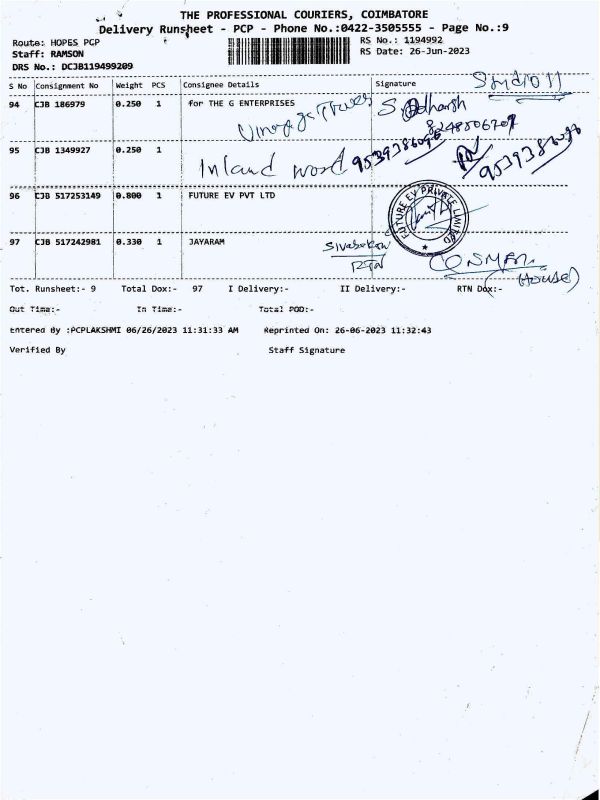 THE PROFESSIONAL COURIERS, COIMBATORE
Delivery Runsheet - PCP - Phone No.:0422-3505555 - Page No.:9
Route: HOPES PCP
RS No.: 1194992
Staff: RAMSON
RS Date: 26-Jun-2023
DRS No.: DCJB119499209
S No Consignment No Weight PCS Consignee Details Signature
94 CJB 186979 0.250 1 for THE G ENTERPRISES
95 CJB 1349927 0.250 1
Inland word
96 CJB 517253149 0.800 1 FUTURE EV PVT LTD
FUTURE EV PRIVATE LIMITED
97 CJB 517242981 0.330 1 JAYARAM
(House)
Tot. Runsheet:- 9 Total Dox:- 97 I Delivery:- II Delivery:- RTN Dox:-
Out Time:- In Time:- Total POD:-
Entered By :PCPLAKSHMI 06/26/2023 11:31:33 AM Reprinted On: 26-06-2023 11:32:43
Verified By Staff Signature